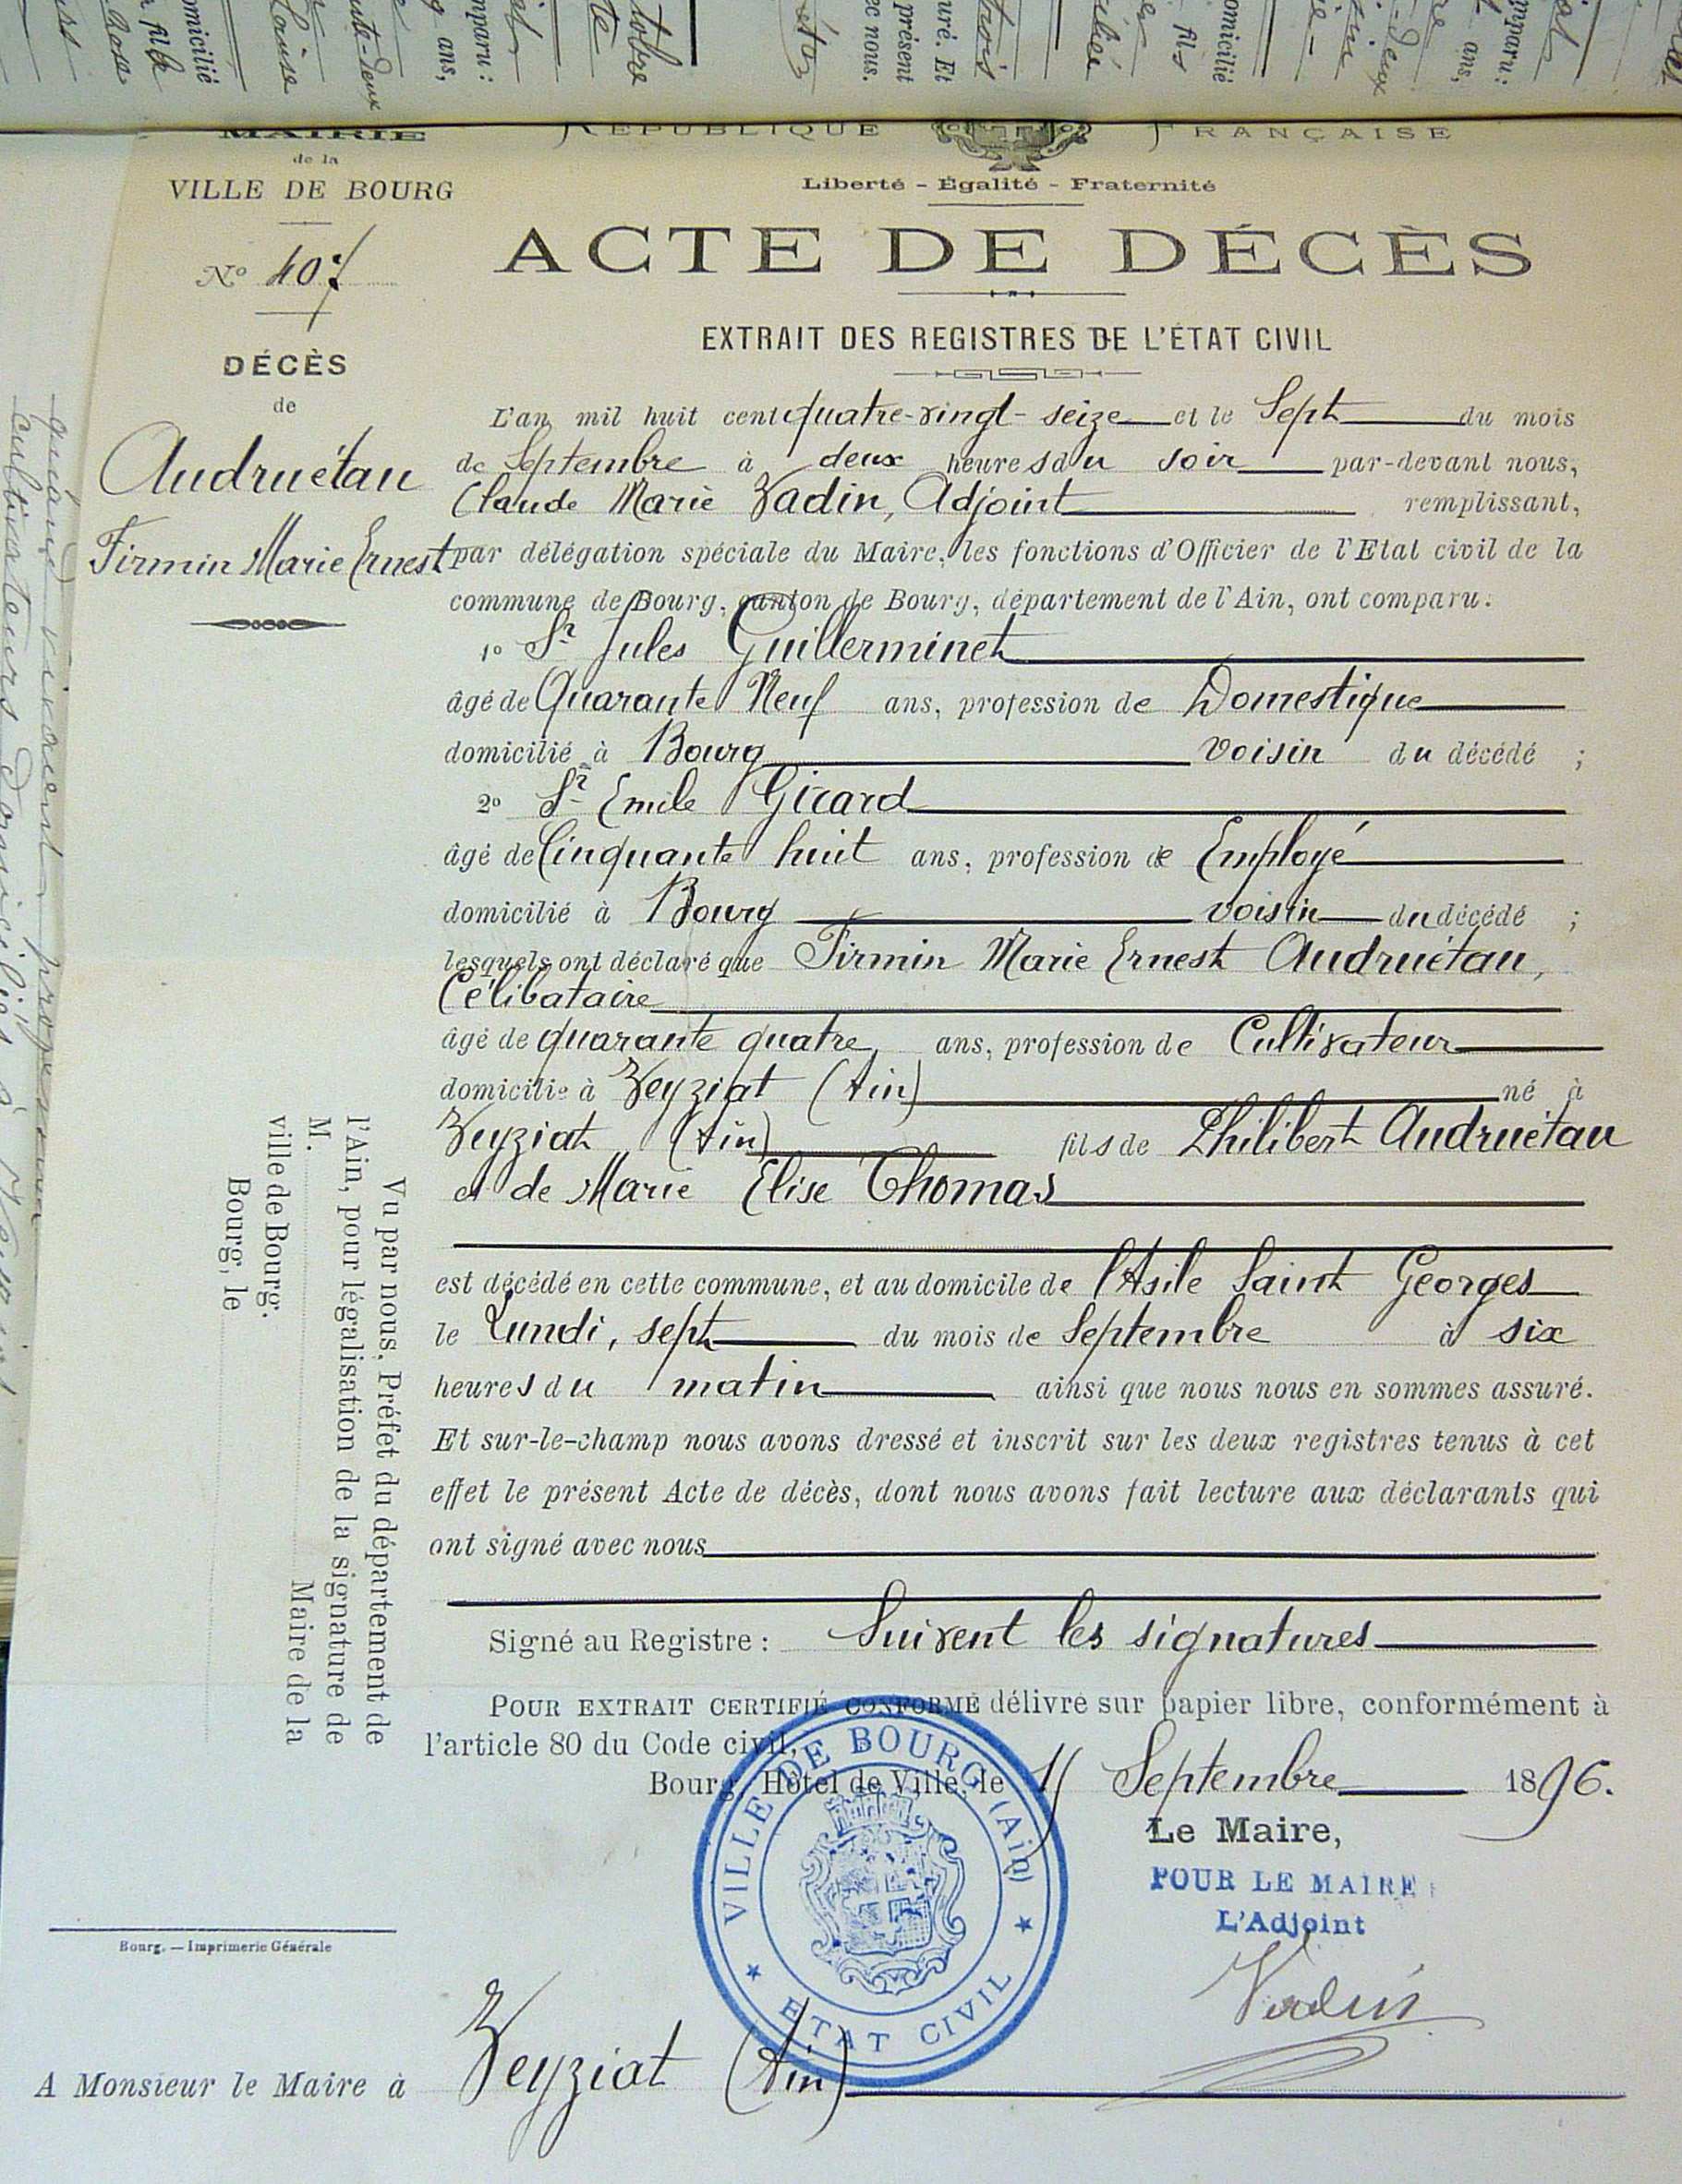 MAIRIE
de la
VILLE DE BOURG
N° 407
DÉCÈS
de
Audruétau
Firmin Marie Ernest
RÉPUBLIQUE FRANÇAISE
Liberté - Égalité - Fraternité
ACTE DE DÉCÈS
EXTRAIT DES REGISTRES DE L'ÉTAT CIVIL
L'an mil huit cent quatre-vingt-seize et le Sept du mois
de Septembre à deux heures du soir par-devant nous,
Claude Marie Vadin, Adjoint remplissant,
par délégation spéciale du Maire, les fonctions d'Officier de l'Etat civil de la
commune de Bourg, canton de Bourg, département de l'Ain, ont comparu:
1° Sr Jules Guillerminet
âgé de Quarante Neuf ans, profession de Domestique
domicilié à Bourg voisin du décédé ;
2° Sr Emile Girard
âgé de Cinquante huit ans, profession de Employé
domicilié à Bourg voisin du décédé ;
lesquels ont déclaré que Firmin Marie Ernest Audruétau,
Célibataire
âgé de quarante quatre ans, profession de Cultivateur
domicilié à Veyziat (Ain) né à
Veyziat (Ain) fils de Philibert Audruétau
et de Marie Elise Thomas
est décédé en cette commune, et au domicile de l'Asile Saint Georges
le Lundi, sept du mois de Septembre à six
heures du matin ainsi que nous nous en sommes assuré.
Et sur-le-champ nous avons dressé et inscrit sur les deux registres tenus à cet
effet le présent Acte de décès, dont nous avons fait lecture aux déclarants qui
ont signé avec nous
Signé au Registre : Suivent les signatures
POUR EXTRAIT CERTIFIÉ CONFORME délivré sur papier libre, conformément à
l'article 80 du Code civil,
Bourg, Hôtel de Ville, le 11 Septembre 1896.
Le Maire,
POUR LE MAIRE
L'Adjoint
Vadin
VILLE DE BOURG (Ain)
ETAT CIVIL
Vu par nous, Préfet du département de
l'Ain, pour légalisation de la signature de
M. Maire de la
ville de Bourg.
Bourg, le
Bourg. — Imprimerie Générale
A Monsieur le Maire à Veyziat (Ain)